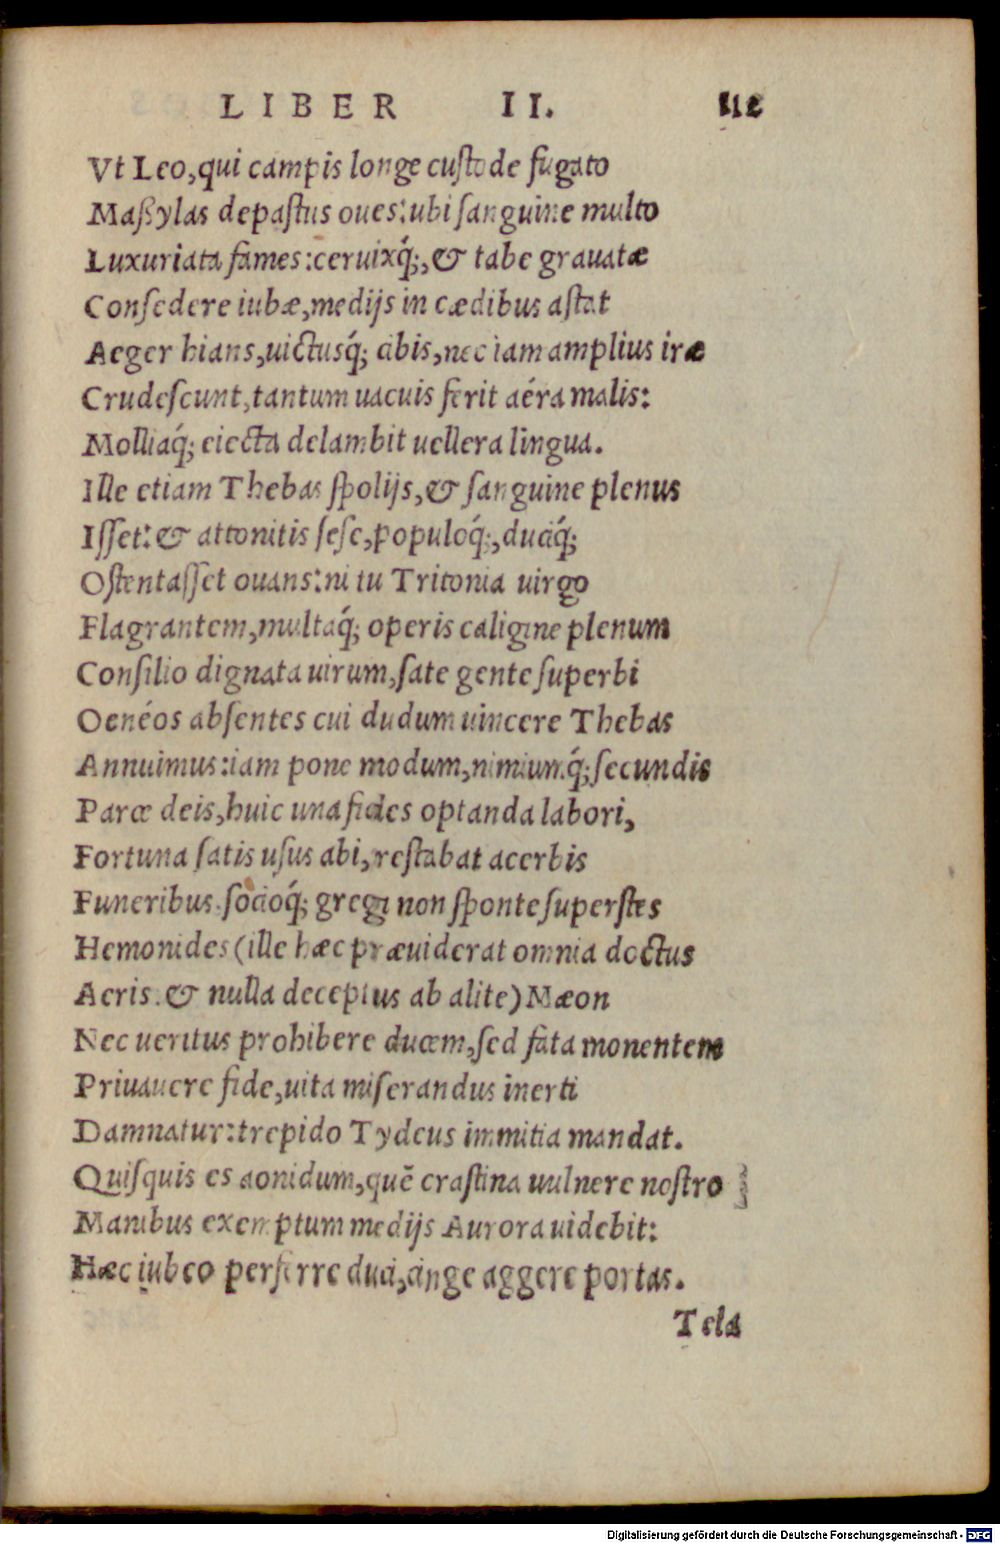 LIBER II.
Vt Leo,qui campis longe custode fugato
Maßylas depastus oues:ubi sanguine multo
Luxuriata fames:ceruixq́;,& tabe grauatæ
Consedere iubæ,medijs in cædibus astat
Aeger hians,uictusq́; cibis,nec iam amplius iræ
Crudescunt,tantum uacuis ferit aéra malis:
Molliaq́; eiecta delambit uellera lingua.
Ille etiam Thebas spolijs,& sanguine plenus
Isset:& attonitis sese,populoq́;,duciq́;
Ostentasset ouans:ni tu Tritonia uirgo
Flagrantem,multaq́; operis caligine plenum
Consilio dignata uirum,sate gente superbi
Oenéos absentes cui dudum uincere Thebas
Annuimus:iam pone modum,nimiumq́;secundis
Parce deis,huic una fides optanda labori,
Fortuna satis usus abi,restabat acerbis
Funeribus socioq́; gregi non sponte superstes
Hemonides(ille hæc præuiderat omnia doctus
Aeris.& nulla deceptus ab alite)Mæon
Nec ueritus prohibere ducem,sed fata monentem
Priuauere fide,uita miserandus inerti
Damnatur:trepido Tydeus immitia mandat.
Quisquis es aonidum,quē crastina uulnere nostro
Manibus exemptum medijs Aurora uidebit:
Hæc iubeo perferre duci,cinge aggere portas.
Tela
Digitalisierung gefördert durch die Deutsche Forschungsgemeinschaft - DFG